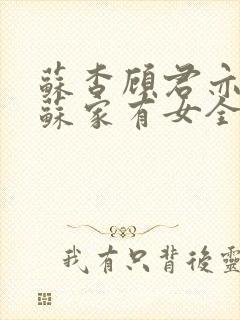 蘇杏顧君亦
蘇家有女全
我有只背後靈